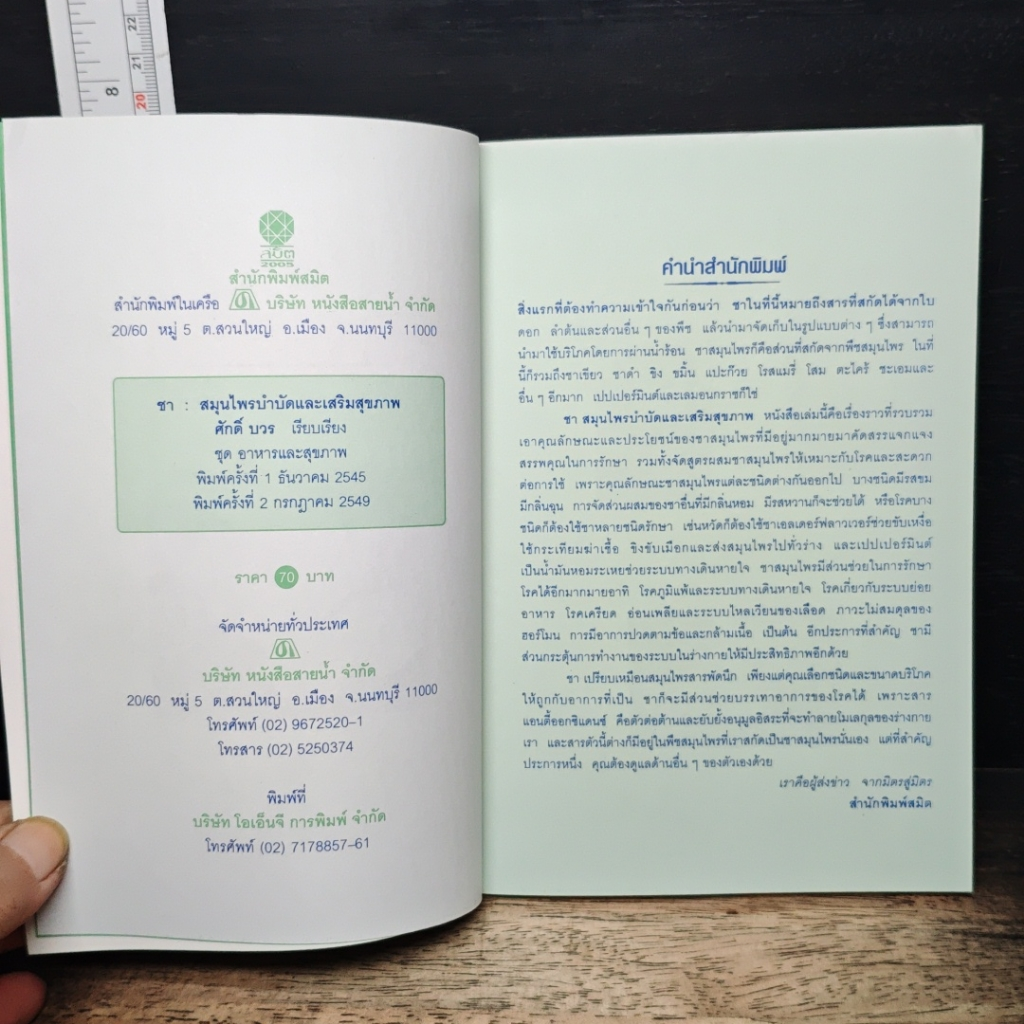 22
21
8
20
สมิต
2005
สำนักพิมพ์สมิต
สำนักพิมพ์ในเครือ บริษัท หนังสือสายน้ำ จำกัด
20/60 หมู่ 5 ต.สวนใหญ่ อ.เมือง จ.นนทบุรี 11000
ชา : สมุนไพรบำบัดและเสริมสุขภาพ
ศักดิ์ บวร เรียบเรียง
ชุด อาหารและสุขภาพ
พิมพ์ครั้งที่ 1 ธันวาคม 2545
พิมพ์ครั้งที่ 2 กรกฎาคม 2549
ราคา 70 บาท
จัดจำหน่ายทั่วประเทศ
บริษัท หนังสือสายน้ำ จำกัด
20/60 หมู่ 5 ต.สวนใหญ่ อ.เมือง จ.นนทบุรี 11000
โทรศัพท์ (02) 9672520-1
โทรสาร (02) 5250374
พิมพ์ที่
บริษัท โอเอ็นจี การพิมพ์ จำกัด
โทรศัพท์ (02) 7178857-61
คำนำสำนักพิมพ์
สิ่งแรกที่ต้องทำความเข้าใจกันก่อนว่า ชาในที่นี้หมายถึงสารที่สกัดได้จากใบ
ดอก ลำต้นและส่วนอื่น ๆ ของพืช แล้วนำมาจัดเก็บในรูปแบบต่าง ๆ ซึ่งสามารถ
นำมาใช้บริโภคโดยการผ่านน้ำร้อน ชาสมุนไพรก็คือส่วนที่สกัดจากพืชสมุนไพร ในที่
นี้ก็รวมถึงชาเขียว ชาดำ ขิง ขมิ้น แปะก๊วย โรสแมรี่ โสม ตะไคร้ ชะเอมและ
อื่น ๆ อีกมาก เปปเปอร์มินต์และเลมอนกราซก็ใช่
ชา สมุนไพรบำบัดและเสริมสุขภาพ หนังสือเล่มนี้คือเรื่องราวที่รวบรวม
เอาคุณลักษณะและประโยชน์ของชาสมุนไพรที่มีอยู่มากมายมาคัดสรรแจกแจง
สรรพคุณในการรักษา รวมทั้งจัดสูตรผสมชาสมุนไพรให้เหมาะกับโรคและสะดวก
ต่อการใช้ เพราะคุณลักษณะชาสมุนไพรแต่ละชนิดต่างกันออกไป บางชนิดมีรสขม
มีกลิ่นฉุน การจัดส่วนผสมของชาอื่นที่มีกลิ่นหอม มีรสหวานก็จะช่วยได้ หรือโรคบาง
ชนิดก็ต้องใช้ชาหลายชนิดรักษา เช่นหวัดก็ต้องใช้ชาเอลเดอร์ฟลาวเวอร์ช่วยขับเหงื่อ
ใช้กระเทียมฆ่าเชื้อ ขิงขับเมือกและส่งสมุนไพรไปทั่วร่าง และเปปเปอร์มินต์
เป็นน้ำมันหอมระเหยช่วยระบบทางเดินหายใจ ชาสมุนไพรมีส่วนช่วยในการรักษา
โรคได้อีกมากมายอาทิ โรคภูมิแพ้และระบบทางเดินหายใจ โรคเกี่ยวกับระบบย่อย
อาหาร โรคเครียด อ่อนเพลียและระบบไหลเวียนของเลือด ภาวะไม่สมดุลของ
ฮอร์โมน การมีอาการปวดตามข้อและกล้ามเนื้อ เป็นต้น อีกประการที่สำคัญ ชามี
ส่วนกระตุ้นการทำงานของระบบในร่างกายให้มีประสิทธิภาพอีกด้วย
ชา เปรียบเหมือนสมุนไพรสารพัดนึก เพียงแต่คุณเลือกชนิดและขนาดบริโภค
ให้ถูกกับอาการที่เป็น ชาก็จะมีส่วนช่วยบรรเทาอาการของโรคได้ เพราะสาร
แอนตี้ออกซิแดนซ์ คือตัวต่อต้านและยับยั้งอนุมูลอิสระที่จะทำลายโมเลกุลของร่างกาย
เรา และสารตัวนี้ต่างก็มีอยู่ในพืชสมุนไพรที่เราสกัดเป็นชาสมุนไพรนั่นเอง แต่ที่สำคัญ
ประการหนึ่ง คุณต้องดูแลด้านอื่น ๆ ของตัวเองด้วย
เราคือผู้ส่งข่าว จากมิตรสู่มิตร
สำนักพิมพ์สมิต